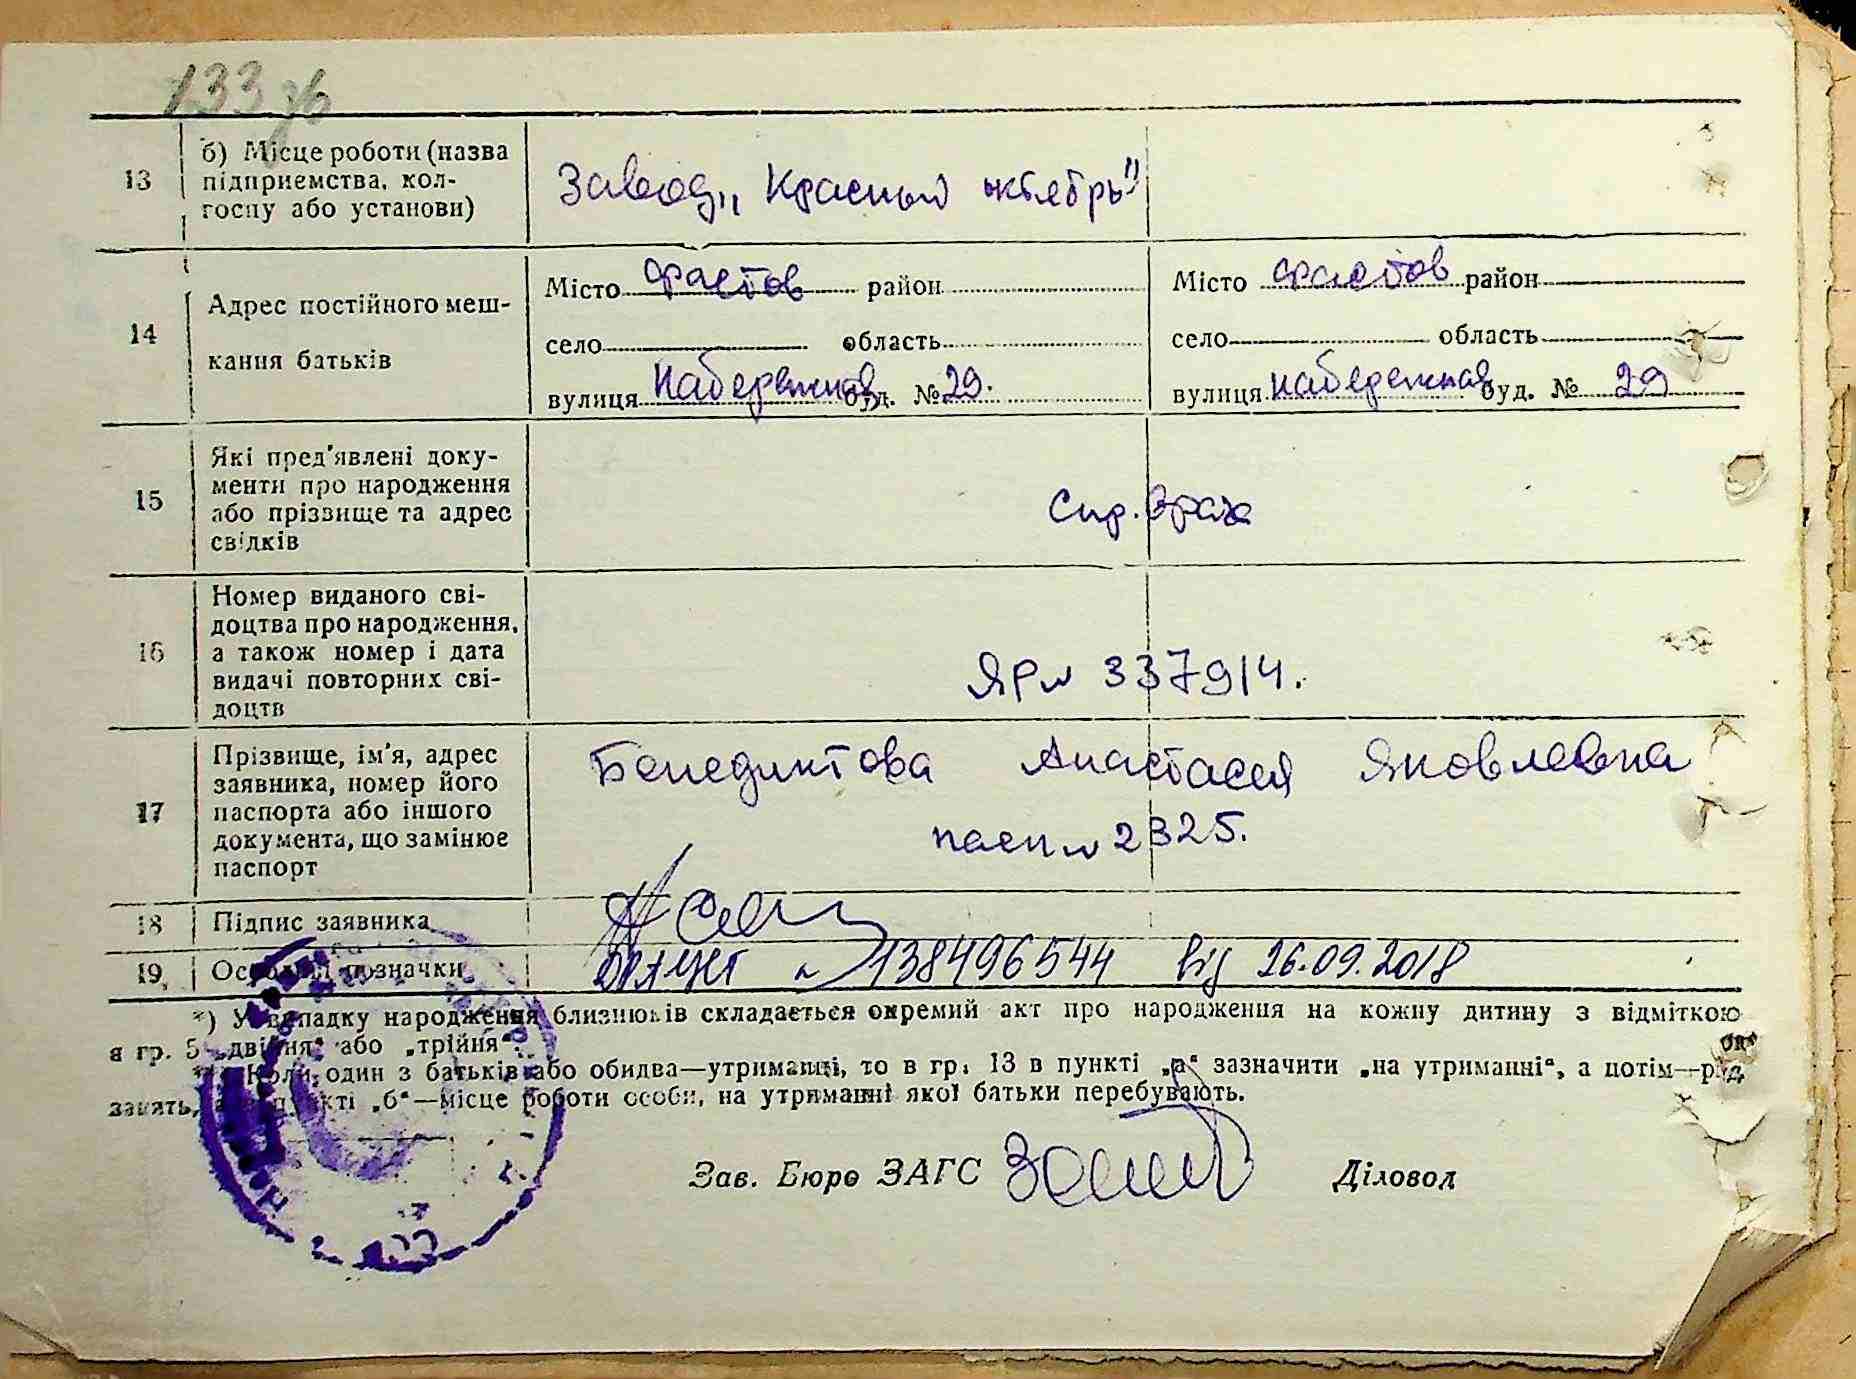 133 зв
13 б) Місце роботи (назва підприємства, кол-госпу або установи) Завод „Красный октябрь"
14 Адрес постійного меш-
кання батьків
Місто Фастов район Місто Фастов район
село область село область
вулиця Набережная буд. № 29. вулиця Набережная буд. № 29
15 Які пред'явлені доку-
менти про народження
або прізвище та адрес
свідків
Спр. врача
16 Номер виданого сві-
доцтва про народження,
а також номер і дата
видачі повторних сві-
доцтв
ЯР № 337914.
17 Прізвище, ім'я, адрес
заявника, номер його
паспорта або іншого
документа, що замінює
паспорт
Бенедиктова Анастасия Яковлевна
пасп № 2325.
18 Підпис заявника
19. Особливі позначки № 138496544 від 26.09.2018
*) У випадку народження близнюків складається окремий акт про народження на кожну дитину з відміткою
в гр. 5 „двійня" або „трійня".
Коли один з батьків або обидва—утриманці, то в гр. 13 в пункті „а" зазначити „на утриманні", а потім—рід
занять, а в пункті „б"—місце роботи особи, на утриманні якої батьки перебувають.
Зав. Бюро ЗАГС Діловод